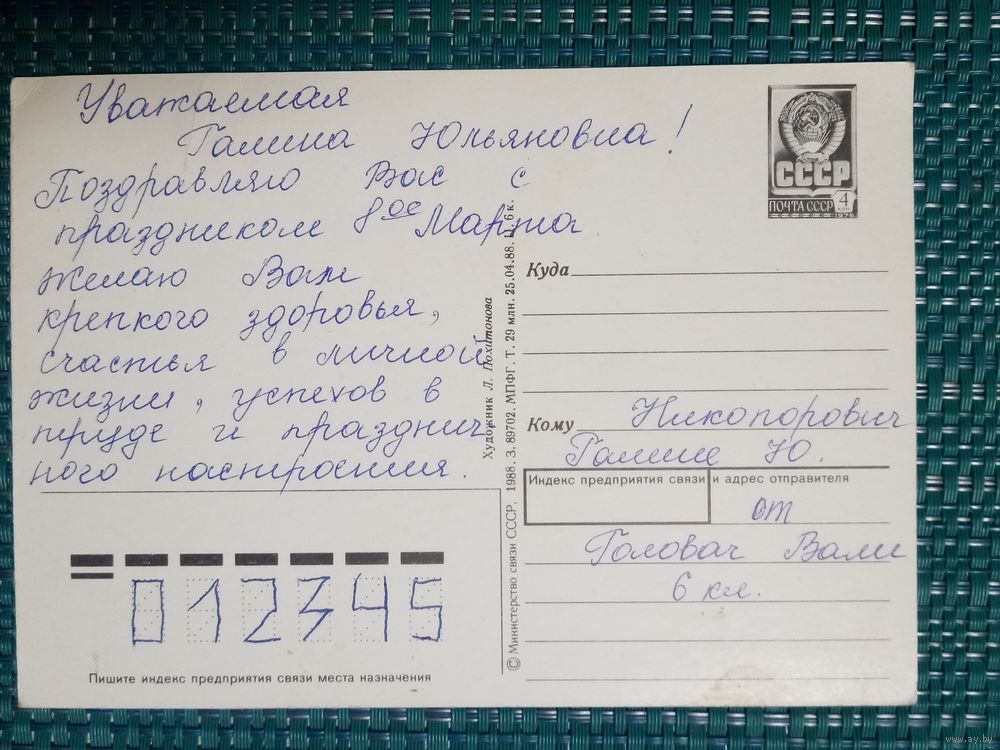 Уважаемая
Галина Юльяновна!
Поздравляю Вас с
праздником 8ое Марта
желаю Вам
крепкого здоровья,
счастья в личной
жизни, успехов в
труде и празднич
ного настроения.
СССР
ПОЧТА СССР 4 коп
1976
Куда
Кому Никопорович
Галине Ю.
Индекс предприятия связи и адрес отправителя
от
Головач Вали
6 кл.
012345
Пишите индекс предприятия связи места назначения
Художник Л. Похитонова
© Министерство связи СССР, 1988. З. 89702. МПФГ. Т. 29 млн. 25.04.88. Ц. 6 к.
www.ay.by